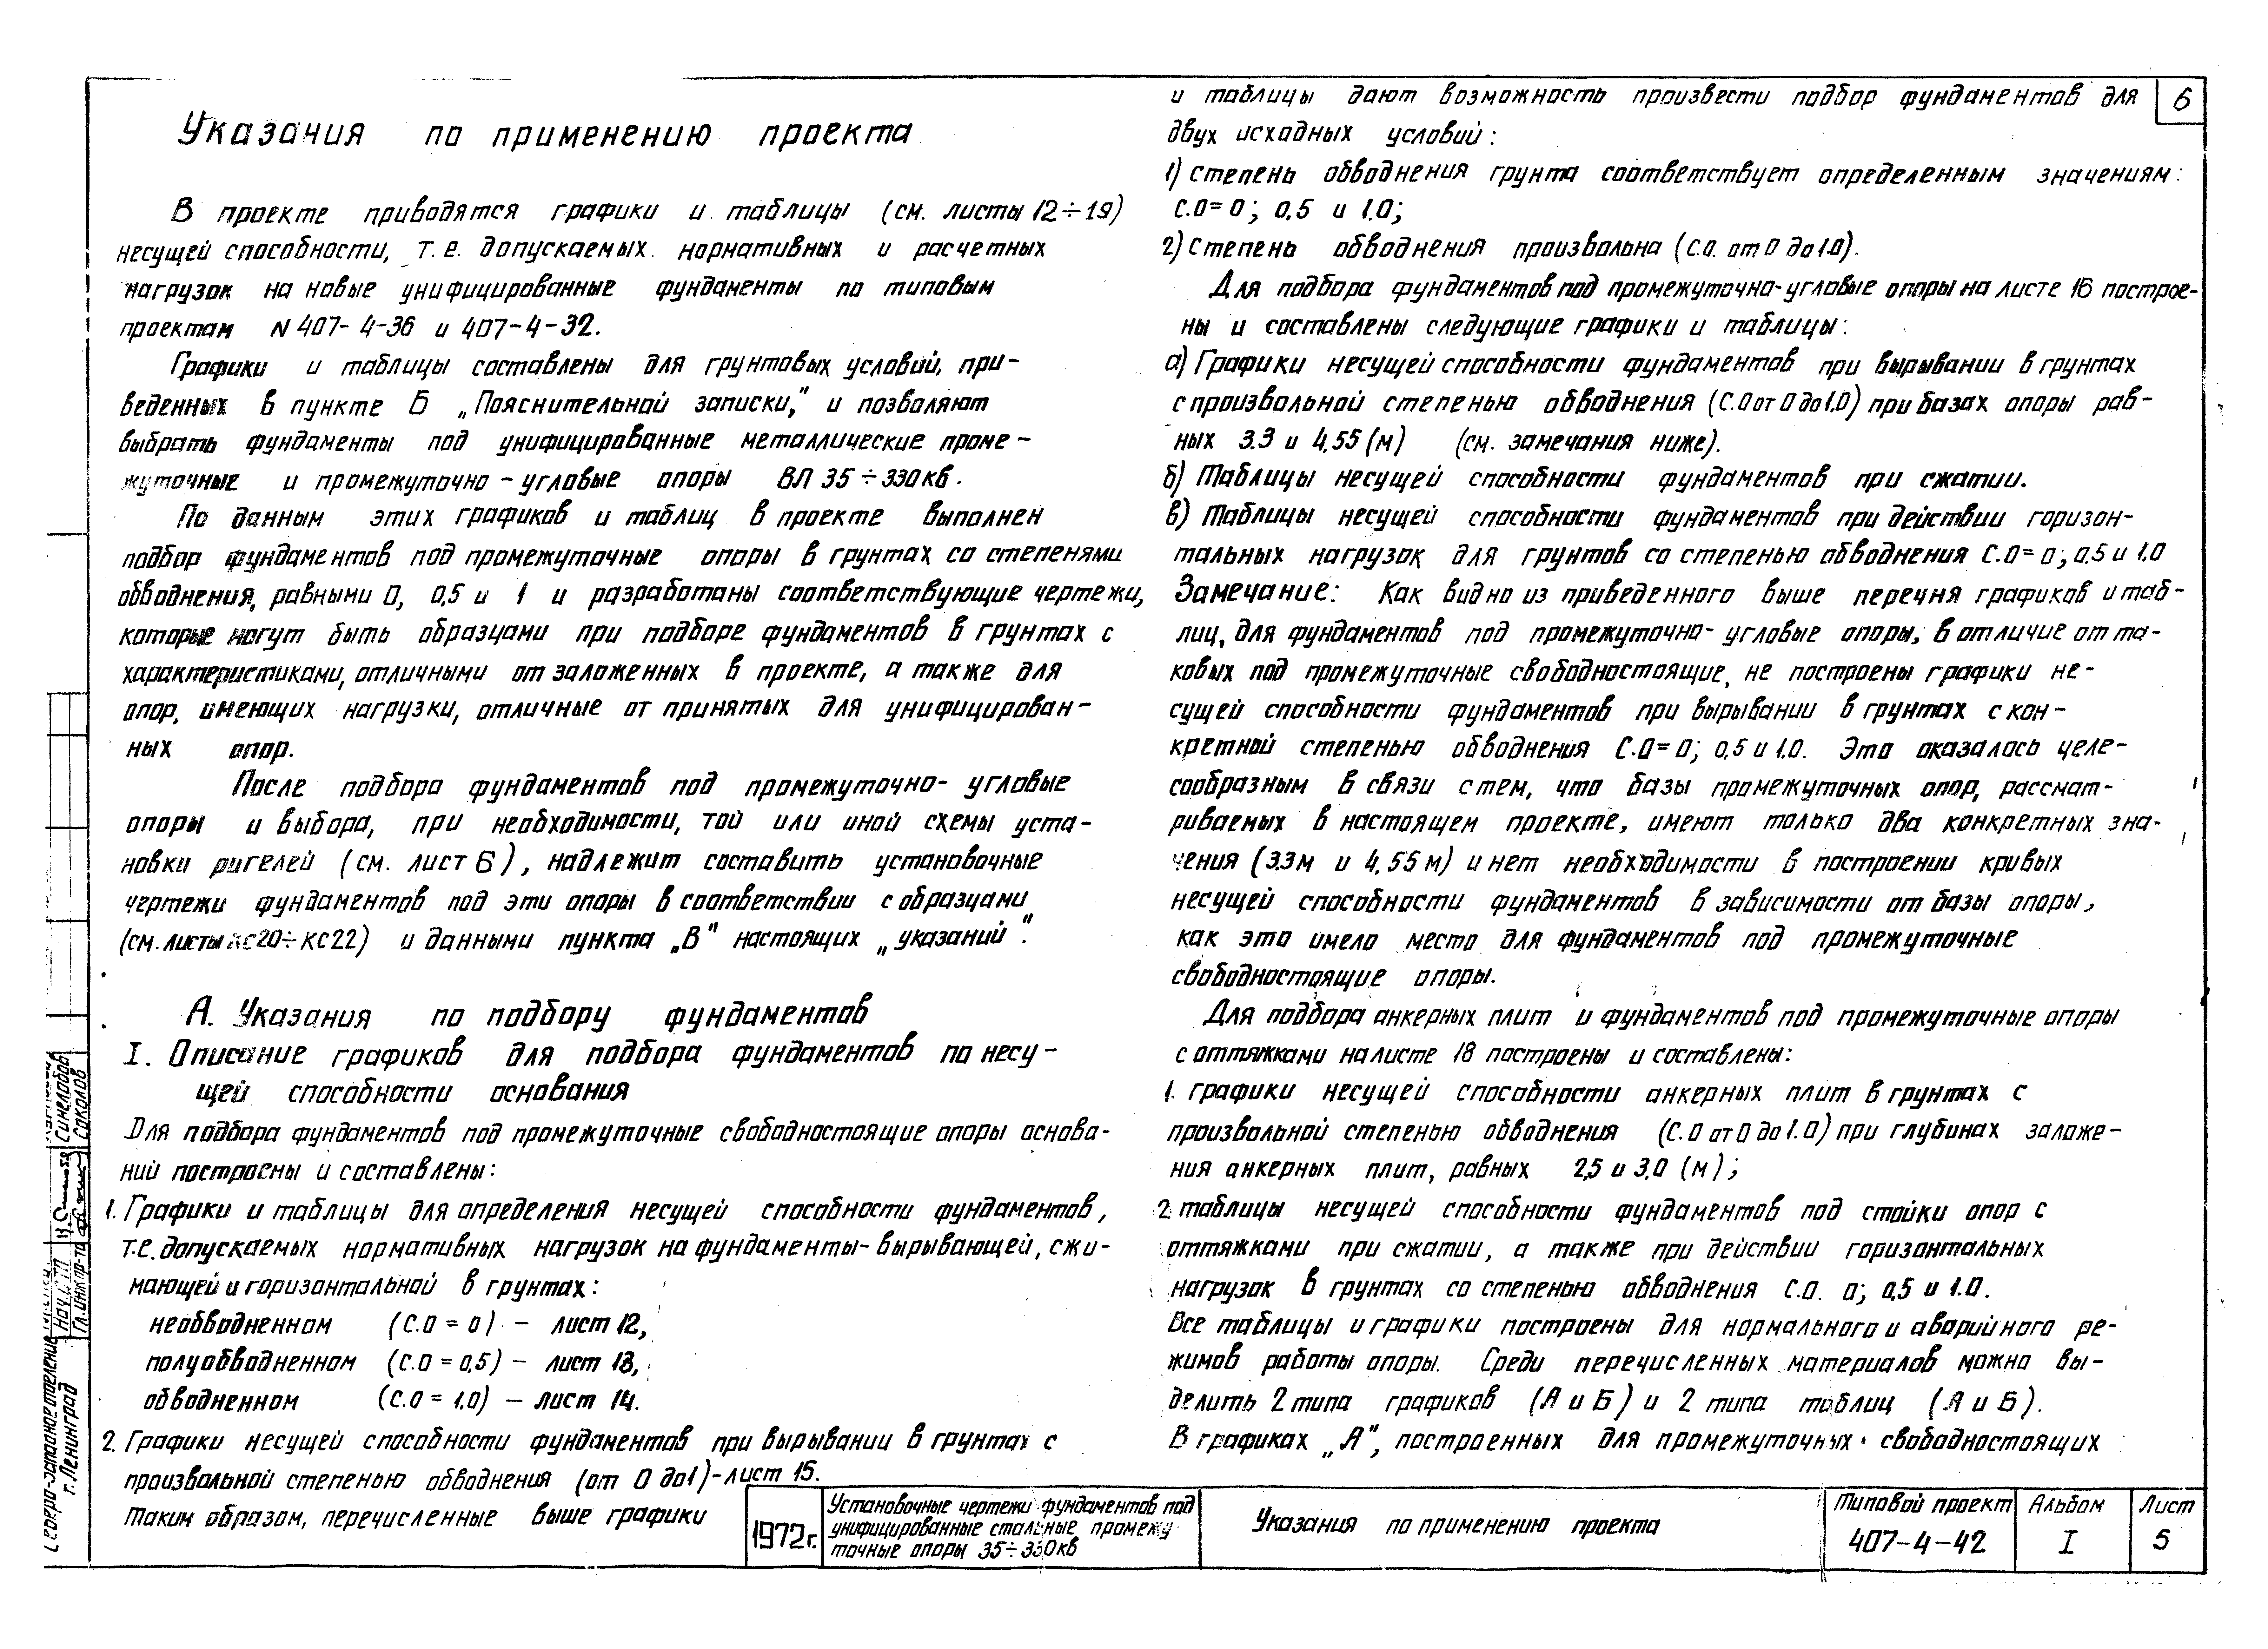 6
Указания по применению проекта
В проекте приводятся графики и таблицы (см. листы 12÷19)
несущей способности, т.е. допускаемых нормативных и расчетных
нагрузок на новые унифицированные фундаменты по типовым
проектам N 407-4-36 и 407-4-32.
Графики и таблицы составлены для грунтовых условий, при-
веденных в пункте Б „Пояснительной записки," и позволяют
выбрать фундаменты под унифицированные металлические проме-
жуточные и промежуточно-угловые опоры ВЛ 35÷330кв.
По данным этих графиков и таблиц в проекте выполнен
подбор фундаментов под промежуточные опоры в грунтах со степенями
обводнения, равными 0, 0,5 и 1 и разработаны соответствующие чертежи,
которые могут быть образцами при подборе фундаментов в грунтах с
характеристиками, отличными от заложенных в проекте, а также для
опор, имеющих нагрузки, отличные от принятых для унифицирован-
ных опор.
После подбора фундаментов под промежуточно-угловые
опоры и выбора, при необходимости, той или иной схемы уста-
новки ригелей (см. лист 6), надлежит составить установочные
чертежи фундаментов под эти опоры в соответствии с образцами
(см. листы КС20÷КС22) и данными пункта „В" настоящих „указаний".
А. Указания по подбору фундаментов
I. Описание графиков для подбора фундаментов по несу-
щей способности основания
Для подбора фундаментов под промежуточные свободностоящие опоры основа-
ний построены и составлены:
1. Графики и таблицы для определения несущей способности фундаментов,
т.е. допускаемых нормативных нагрузок на фундаменты-вырывающей, сжи-
мающей и горизонтальной в грунтах:
необводненном (С.О = 0) – лист 12,
полуобводненном (С.О = 0,5) – лист 13,
обводненном (С.О = 1,0) – лист 14.
2. Графики несущей способности фундаментов при вырывании в грунтах с
произвольной степенью обводнения (от 0 до 1)-лист 15.
Таким образом, перечисленные выше графики
и таблицы дают возможность произвести подбор фундаментов для
двух исходных условий:
1) степень обводнения грунта соответствует определенным значениям:
С.О=0; 0,5 и 1.0;
2) степень обводнения произвольна (С.О. от 0 до 1.0).
Для подбора фундаментов под промежуточно-угловые опоры на листе 16 построе-
ны и составлены следующие графики и таблицы:
а) Графики несущей способности фундаментов при вырывании в грунтах
с произвольной степенью обводнения (С.О от 0 до 1,0) при базах опоры рав-
ных 3.3 и 4,55 (м) (см. замечания ниже).
б) Таблицы несущей способности фундаментов при сжатии.
в) Таблицы несущей способности фундаментов при действии горизон-
тальных нагрузок для грунтов со степенью обводнения С.О=0; 0,5 и 1.0
Замечание: Как видно из приведенного выше перечня графиков и таб-
лиц, для фундаментов под промежуточно-угловые опоры, в отличие от та-
ковых под промежуточные свободностоящие, не построены графики не-
сущей способности фундаментов при вырывании в грунтах с кон-
кретной степенью обводнения С.О=0; 0,5 и 1.0. Это оказалось целе-
сообразным в связи с тем, что базы промежуточных опор, рассмат-
риваемых в настоящем проекте, имеют только два конкретных зна-
чения (3.3м и 4,55м) и нет необходимости в построении кривых
несущей способности фундаментов в зависимости от базы опоры,
как это имело место для фундаментов под промежуточные
свободностоящие опоры.
Для подбора анкерных плит и фундаментов под промежуточные опоры
с оттяжками на листе 18 построены и составлены:
1. графики несущей способности анкерных плит в грунтах с
произвольной степенью обводнения (С.О от 0 до 1.0) при глубинах заложе-
ния анкерных плит, равных 2,5 и 3,0 (м);
2. таблицы несущей способности фундаментов под стойки опор с
оттяжками при сжатии, а также при действии горизонтальных
нагрузок в грунтах со степенью обводнения С.О. 0; 0,5 и 1.0.
Все таблицы и графики построены для нормального и аварийного ре-
жимов работы опоры. Среди перечисленных материалов можно вы-
делить 2 типа графиков (А и Б) и 2 типа таблиц (А и Б).
В графиках „А", построенных для промежуточных свободностоящих
1972г.
Установочные чертежи фундаментов под
унифицированные стальные промежу-
точные опоры 35÷330кв
Указания по применению проекта
Типовой проект
407-4-42
Альбом
I
Лист
5
Северо-западное отделение
г. Ленинград
Нач. СТП
Гл. инж. пр-та
Синелобов
Соколов